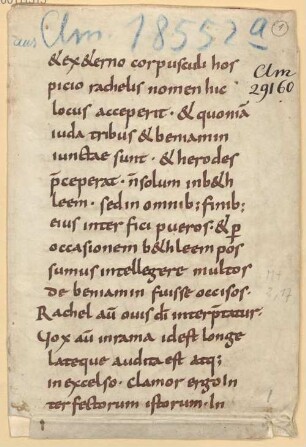 aus Clm. 18552a
1
Clm
29160
& ex &erno corpusculi hos
picio rachelis nomen huc
locus acceperit · & quoniā
iuda tribus & beniamin
iunctae sunt · & herodes
p̄ceperat · n̄ solum in b&h
leem · sed in omnib; finib;
eius inter fici pueros · & ꝑ
occasionem b&hleem pos
sumus intellegere multos
de beniamin fuisse occisos ·
Rachel aū ouis dī interp̄tatur ·
Uox aū in rama id est longe
lateque audita est atq;
in excelso · clamor ergo in
ter fectorum istorum · in